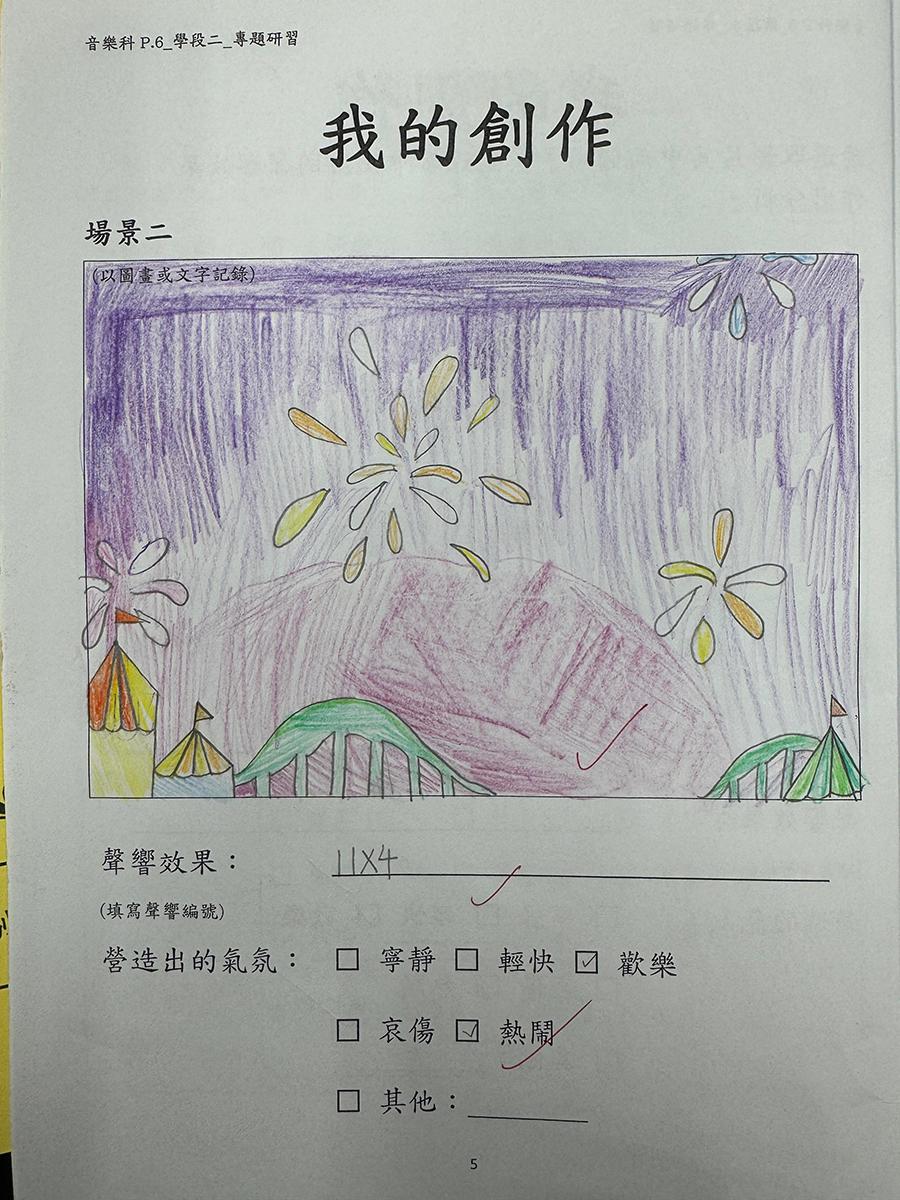 音樂科 P.6_學段二_專題研習
我的創作
場景二
(以圖畫或文字記錄)
聲響效果：11X4
(填寫聲響編號)
營造出的氣氛：☐ 寧靜 ☐ 輕快 ☑ 歡樂
☐ 哀傷 ☑ 熱鬧
☐ 其他：
5